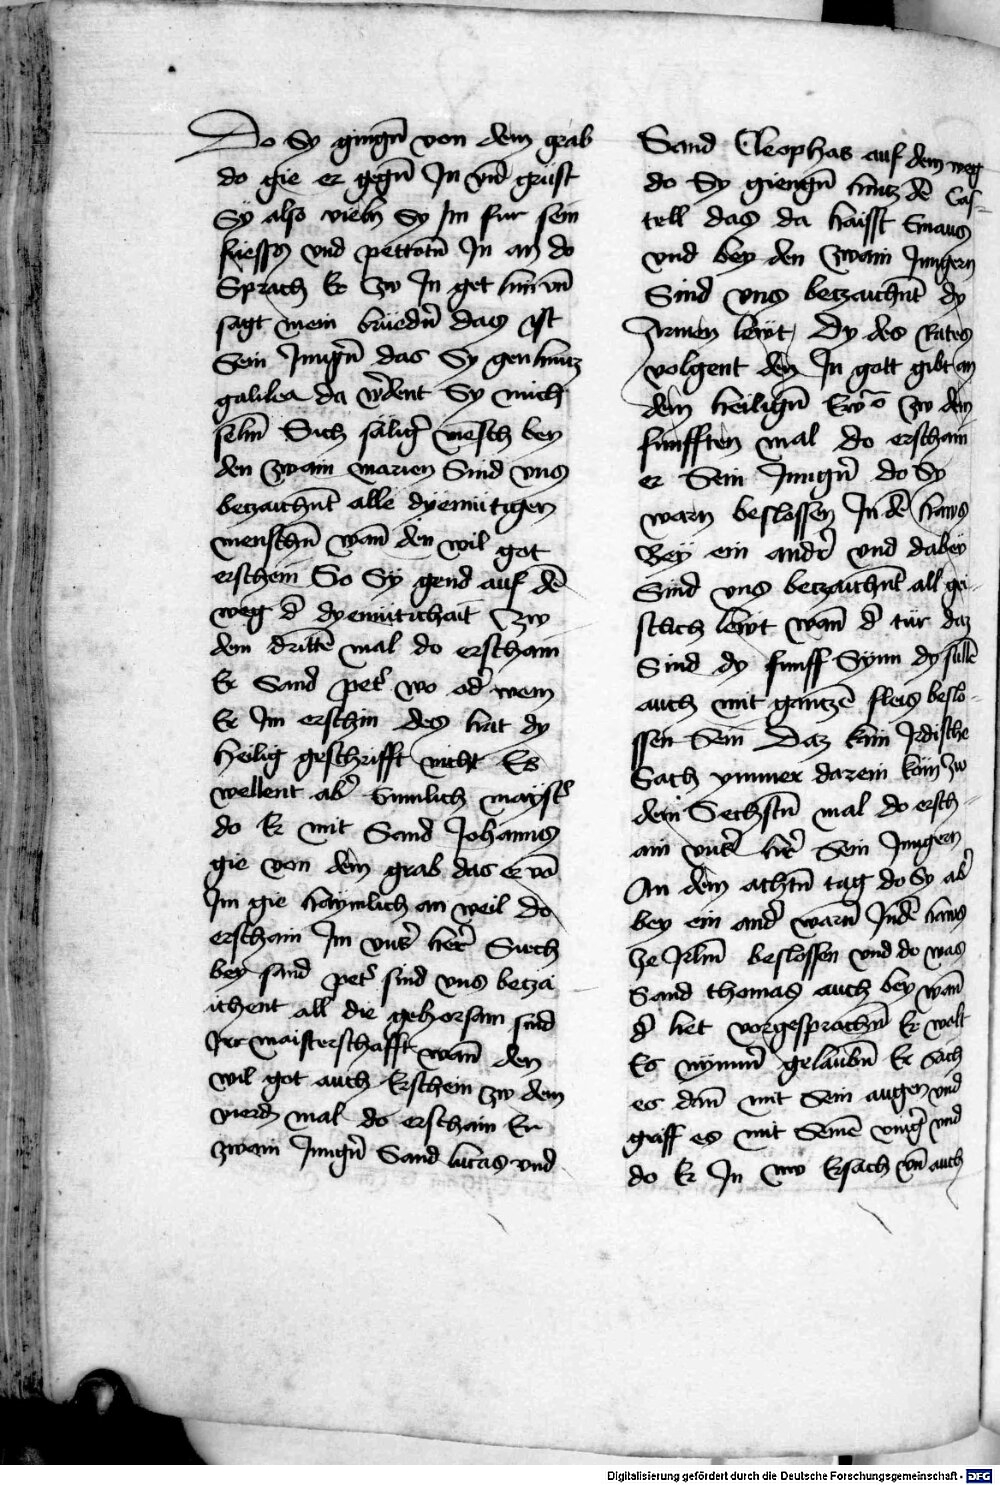 Do Sy gingn̄ von dem grab
do gie er gegn̄ Jn vnd̄ grüst
Sy also vieln Sy Jm fur sein
fuessn vnd pettotn̄ Jn an do
Sprach Er zw Jn get hin vn̄
sagt mein brüedn̄ das ist
Sein Jungn̄ das Sy gen hincz
galilea da w̄dent Sy mich
sehn̄ Sich säligr̄ mēsch bey
den zwain marien Sind vns
betzaichnt̄ alle dyemütigen
menschn̄ wan̄ den wil got
erschein So Sy gend auf dē
weg d̄ dyemütichait zw
dem drittē mal do erschain
Er Sand pet̄ wo od̄ wem
Er Jm erschin des hat dy
heilig geschrifft nicht Es
wellent ab̄ Sumlich mayst̄
do Er mit Sand Johannes
gie von dem grab das er vō
Jm gie haymlich an weil do
erschain Jm vns̄ her̄ Sich
bey sand pet̄ sind vns betzai
ichent all die gehorsam sind
Jrer maisterschafft wan̄ den
wil got auch Erschein zw dem
vierdn mal do erschain Er
zwain Jungn̄ Sand lucas vnd
Sand Cleophas auf dem weg
do Sy giengn̄ hincz dē Cas-
tell das da haisst Emaus
vnd bey den zwain Jungern
Sind vns betzaichnt̄ dy
Armen lewt Dy des Rates
volgent den Jn gott gibt an
dem heilign̄ Ewō zw dem
funfften mal do erschain
er Sein Jungn̄ do Sy
warn beslossen Jn dē haws
Bey ein andr̄ vnd dabey
Sind vns betzaichnt̄ all gei-
stlich lewt wan̄ d̄ tür daz
Sind dy funff Synn dy sullē
auch mit gantzē fleis beslo-
ssen Sein Daz kain Jrdische
Sach ymmer darein köm zw
dem Sechstn̄ mal do ersch-
ain vns̄ her̄ Sein Jungern
An dem achtn̄ tag do Sy ab̄
bey ein and̄ warn̄ Jn dē haws
ze Jrlm̄ beslossen vnd do was
Sand thomas auch bey wan̄
d̄ het vorgesprochn̄ Er wolt
Es nymm̄ gelaubn̄ Er Säch
es dan̄ mit Sein augen vnd
griff es mit Seinē vinḡ vnd
do Er Jn nw Ersach vn̄ auch
Digitalisierung gefördert durch die Deutsche Forschungsgemeinschaft - DFG